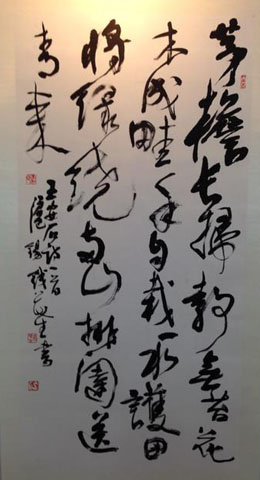 茅檐長掃靜無苔花
木成畦手自栽一水護田
將綠繞兩山排闥送
青來
王安石詩一首
生書